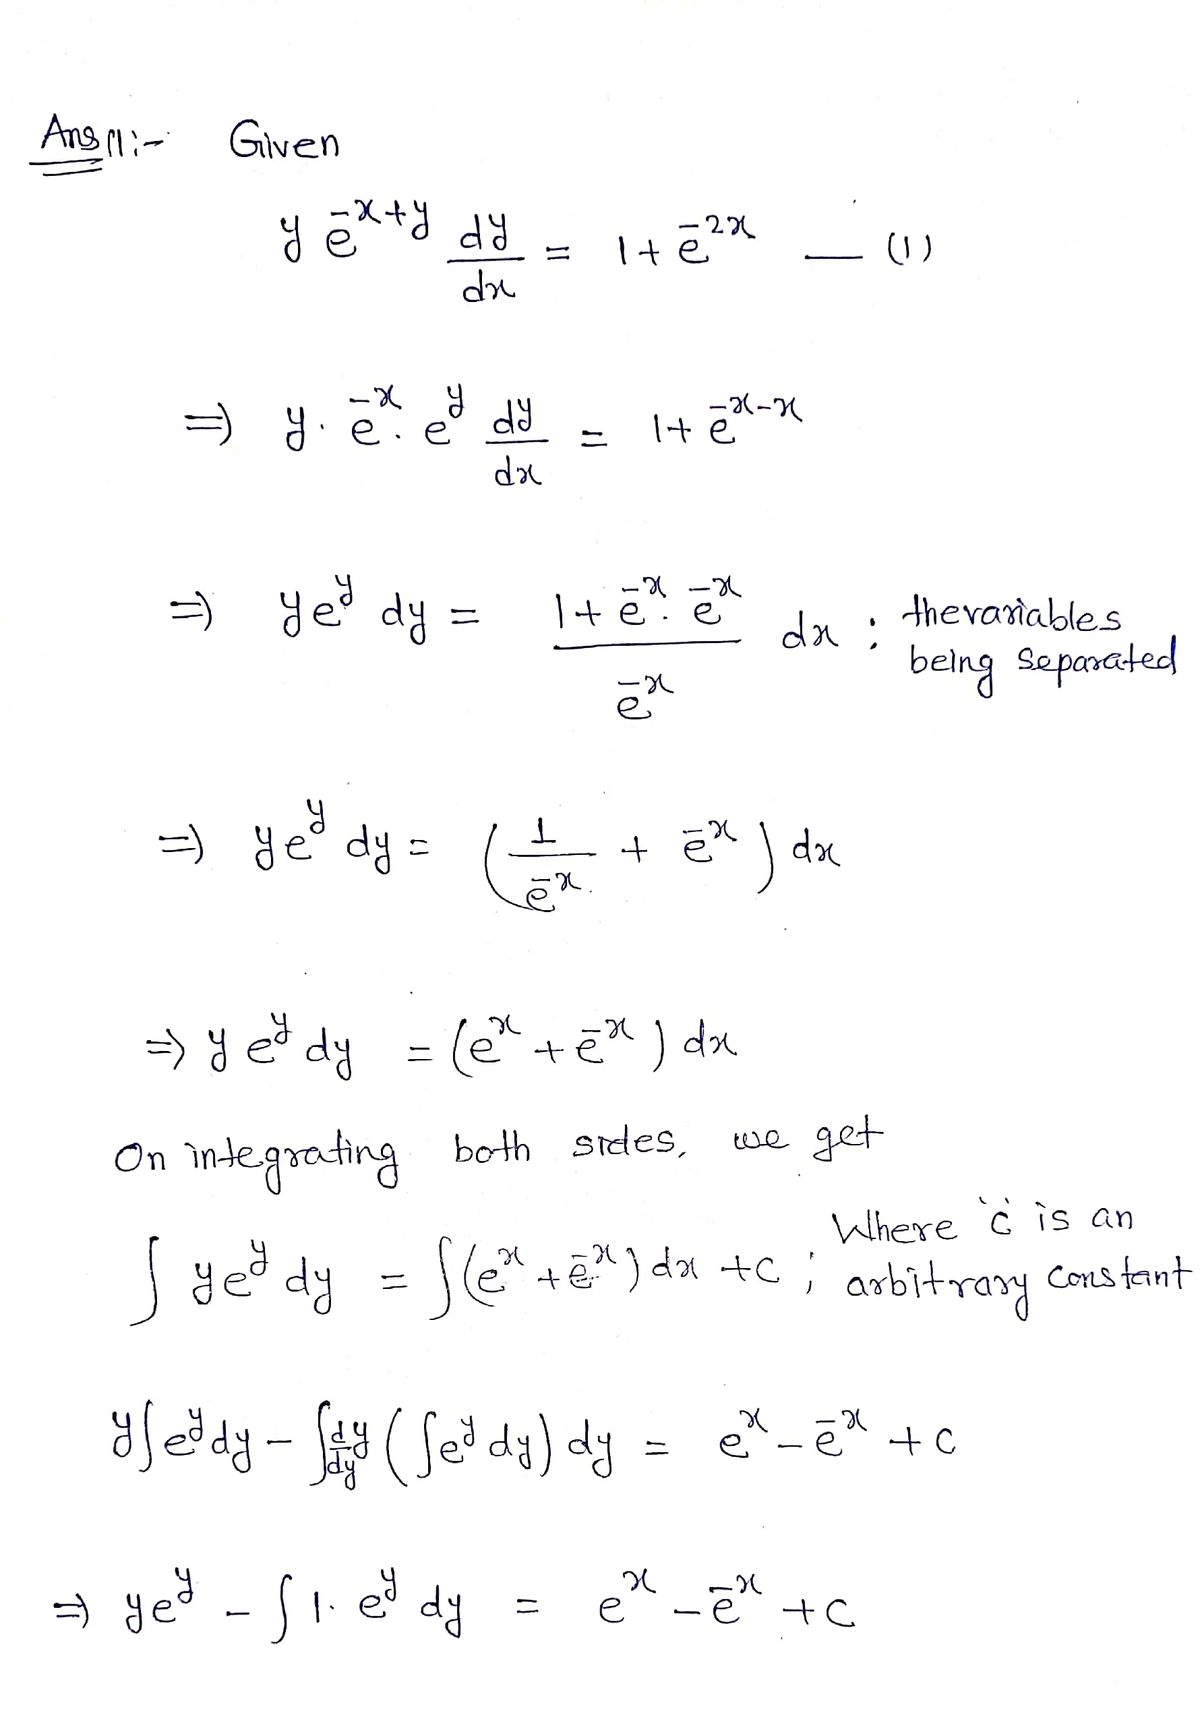 Ans 1:- Given
y e^{-x+y} dy/dx = 1 + e^{-2x} — (1)
⇒ y · e^{-x} · e^y dy/dx = 1 + e^{-x-x}
⇒ y e^y dy = (1 + e^{-x} · e^{-x}) / e^{-x} dx ; the variables being separated
⇒ y e^y dy = (1/e^{-x} + e^{-x}) dx
⇒ y e^y dy = (e^x + e^{-x}) dx
On integrating both sides, we get
∫ y e^y dy = ∫(e^x + e^{-x}) dx + c ; Where 'c' is an arbitrary constant
y∫e^y dy - ∫ dy/dy (∫e^y dy) dy = e^x - e^{-x} + c
⇒ y e^y - ∫ 1 · e^y dy = e^x - e^{-x} + c